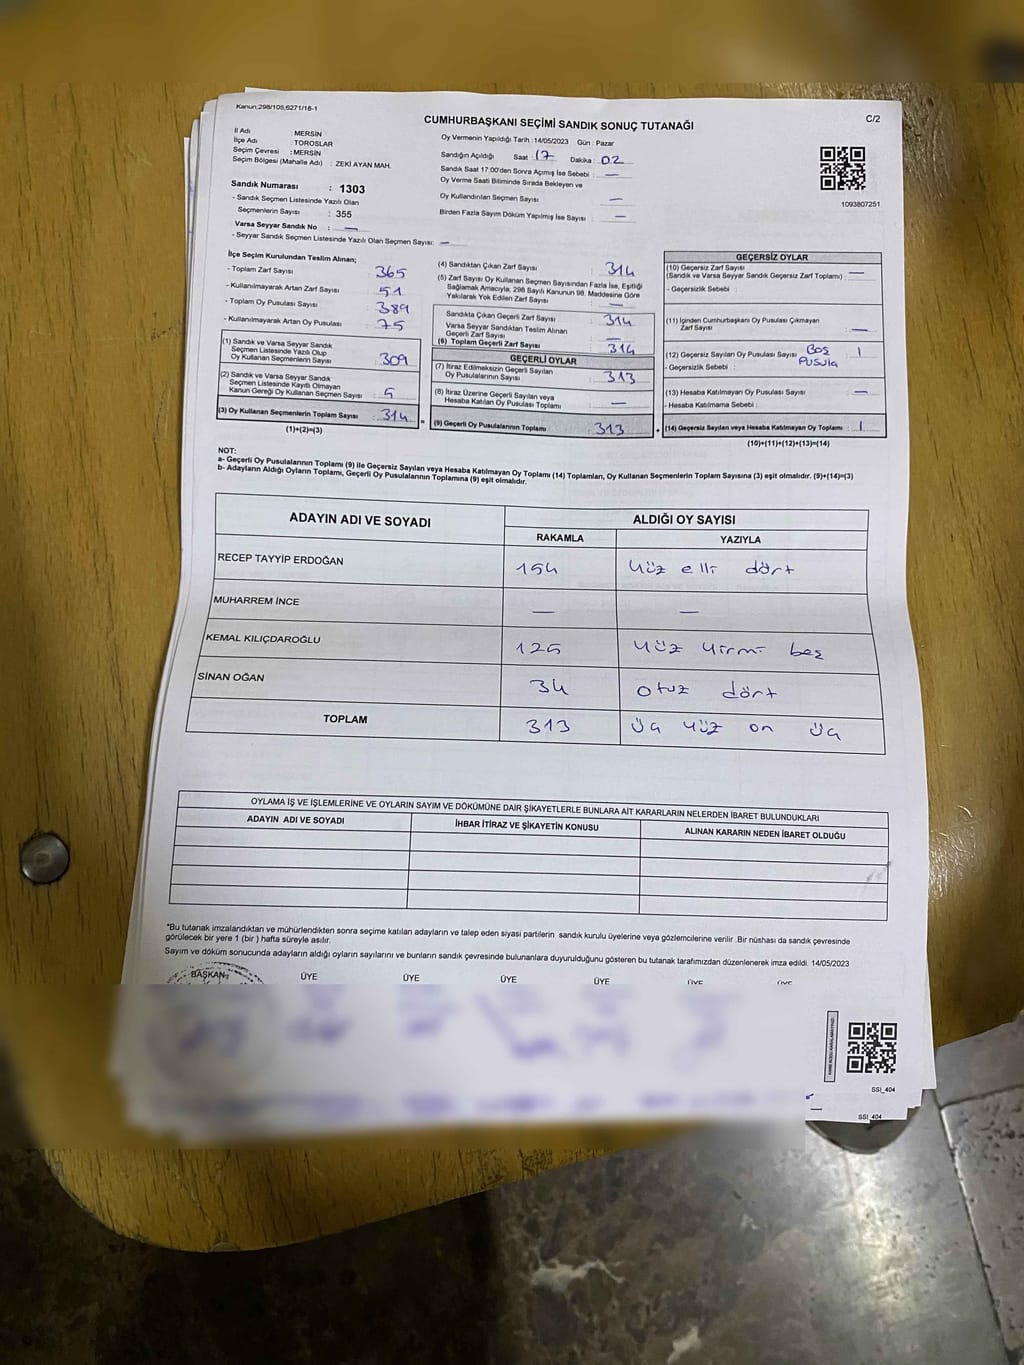 Kanun;298/105,6271/18-1
CUMHURBAŞKANI SEÇİMİ SANDIK SONUÇ TUTANAĞI
C/2
İl Adı : MERSİN
İlçe Adı : TOROSLAR
Seçim Çevresi : MERSİN
Seçim Bölgesi (Mahalle Adı) : ZEKİ AYAN MAH.
Sandık Numarası : 1303
- Sandık Seçmen Listesinde Yazılı Olan
Seçmenlerin Sayısı : 355
Varsa Seyyar Sandık No : —
- Seyyar Sandık Seçmen Listesinde Yazılı Olan Seçmen Sayısı: —
Oy Vermenin Yapıldığı Tarih :14/05/2023 Gün : Pazar
Sandığın Açıldığı Saat 17 Dakika : 02
Sandık Saat 17:00'den Sonra Açımış İse Sebebi : —
Oy Verme Saati Bitiminde Sırada Bekleyen ve
Oy Kullandırılan Seçmen Sayısı —
Birden Fazla Sayım Döküm Yapılmış İse Sayısı : —
1093807251
İlçe Seçim Kurulundan Teslim Alınan;
- Toplam Zarf Sayısı 365
- Kullanılmayarak Artan Zarf Sayısı 51
- Toplam Oy Pusulası Sayısı 389
- Kullanılmayarak Artan Oy Pusulası 75
(1) Sandık ve Varsa Seyyar Sandık
Seçmen Listesinde Yazılı Olup
Oy Kullanan Seçmenlerin Sayısı 309
(2) Sandık ve Varsa Seyyar Sandık
Seçmen Listesinde Kayıtlı Olmayan
Kanun Gereği Oy Kullanan Seçmen Sayısı 5
(3) Oy Kullanan Seçmenlerin Toplam Sayısı 314 =
(1)+(2)=(3)
(4) Sandıktan Çıkan Zarf Sayısı 314
(5) Zarf Sayısı Oy Kullanan Seçmen Sayısından Fazla İse, Eşitliği
Sağlamak Amacıyla, 298 Sayılı Kanunun 98. Maddesine Göre
Yakılarak Yok Edilen Zarf Sayısı : —
Sandıkta Çıkan Geçerli Zarf Sayısı : 314
Varsa Seyyar Sandıktan Teslim Alınan
Geçerli Zarf Sayısı : —
(6) Toplam Geçerli Zarf Sayısı 314
GEÇERLİ OYLAR
(7) İtiraz Edilmeksizin Geçerli Sayılan
Oy Pusulalarının Sayısı : 313
(8) İtiraz Üzerine Geçerli Sayılan veya
Hesaba Katılan Oy Pusulası Toplamı : —
(9) Geçerli Oy Pusulalarının Toplamı 313 +
GEÇERSİZ OYLAR
(10) Geçersiz Zarf Sayısı
(Sandık ve Varsa Seyyar Sandık Geçersiz Zarf Toplamı) : —
- Geçersizlik Sebebi :
(11) İçinden Cumhurbaşkanı Oy Pusulası Çıkmayan
Zarf Sayısı : —
(12) Geçersiz Sayılan Oy Pusulası Sayısı Boş 1
- Geçersizlik Sebebi : Pusula
(13) Hesaba Katılmayan Oy Pusulası Sayısı : —
- Hesaba Katılmama Sebebi :
(14) Geçersiz Sayılan veya Hesaba Katılmayan Oy Toplamı : 1
(10)+(11)+(12)+(13)=(14)
NOT:
a- Geçerli Oy Pusulasının Toplamı (9) ile Geçersiz Sayılan veya Hesaba Katılmayan Oy Toplamı (14) Toplamları, Oy Kullanan Seçmenlerin Toplam Sayısına (3) eşit olmalıdır. (9)+(14)=(3)
b- Adayların Aldığı Oyların Toplamı, Geçerli Oy Pusulalarının Toplamına (9) eşit olmalıdır.
ADAYIN ADI VE SOYADI ALDIĞI OY SAYISI
RAKAMLA YAZIYLA
RECEP TAYYİP ERDOĞAN 154 yüz elli dört
MUHARREM İNCE — —
KEMAL KILIÇDAROĞLU 125 yüz yirmi beş
SİNAN OĞAN 34 otuz dört
TOPLAM 313 üç yüz on üç
OYLAMA İŞ VE İŞLEMLERİNE VE OYLARIN SAYIM VE DÖKÜMÜNE DAİR ŞİKAYETLERLE BUNLARA AİT KARARLARIN NELERDEN İBARET BULUNDUKLARI
ADAYIN ADI VE SOYADI İHBAR İTİRAZ VE ŞİKAYETİN KONUSU ALINAN KARARIN NEDEN İBARET OLDUĞU
*Bu tutanak imzalandıktan ve mühürlendikten sonra seçime katılan adayların ve talep eden siyasi partilerin sandık kurulu üyelerine veya gözlemcilerine verilir .Bir nüshası da sandık çevresinde
görülecek bir yere 1 (bir ) hafta süreyle asılır.
Sayım ve döküm sonucunda adayların aldığı oyların sayılarını ve bunların sandık çevresinde bulunanlara duyurulduğunu gösteren bu tutanak tarafımızdan düzenlenerek imza edildi. 14/05/2023
BAŞKAN ÜYE ÜYE ÜYE ÜYE ÜYE ÜYE
SSİ_404
SSİ_404